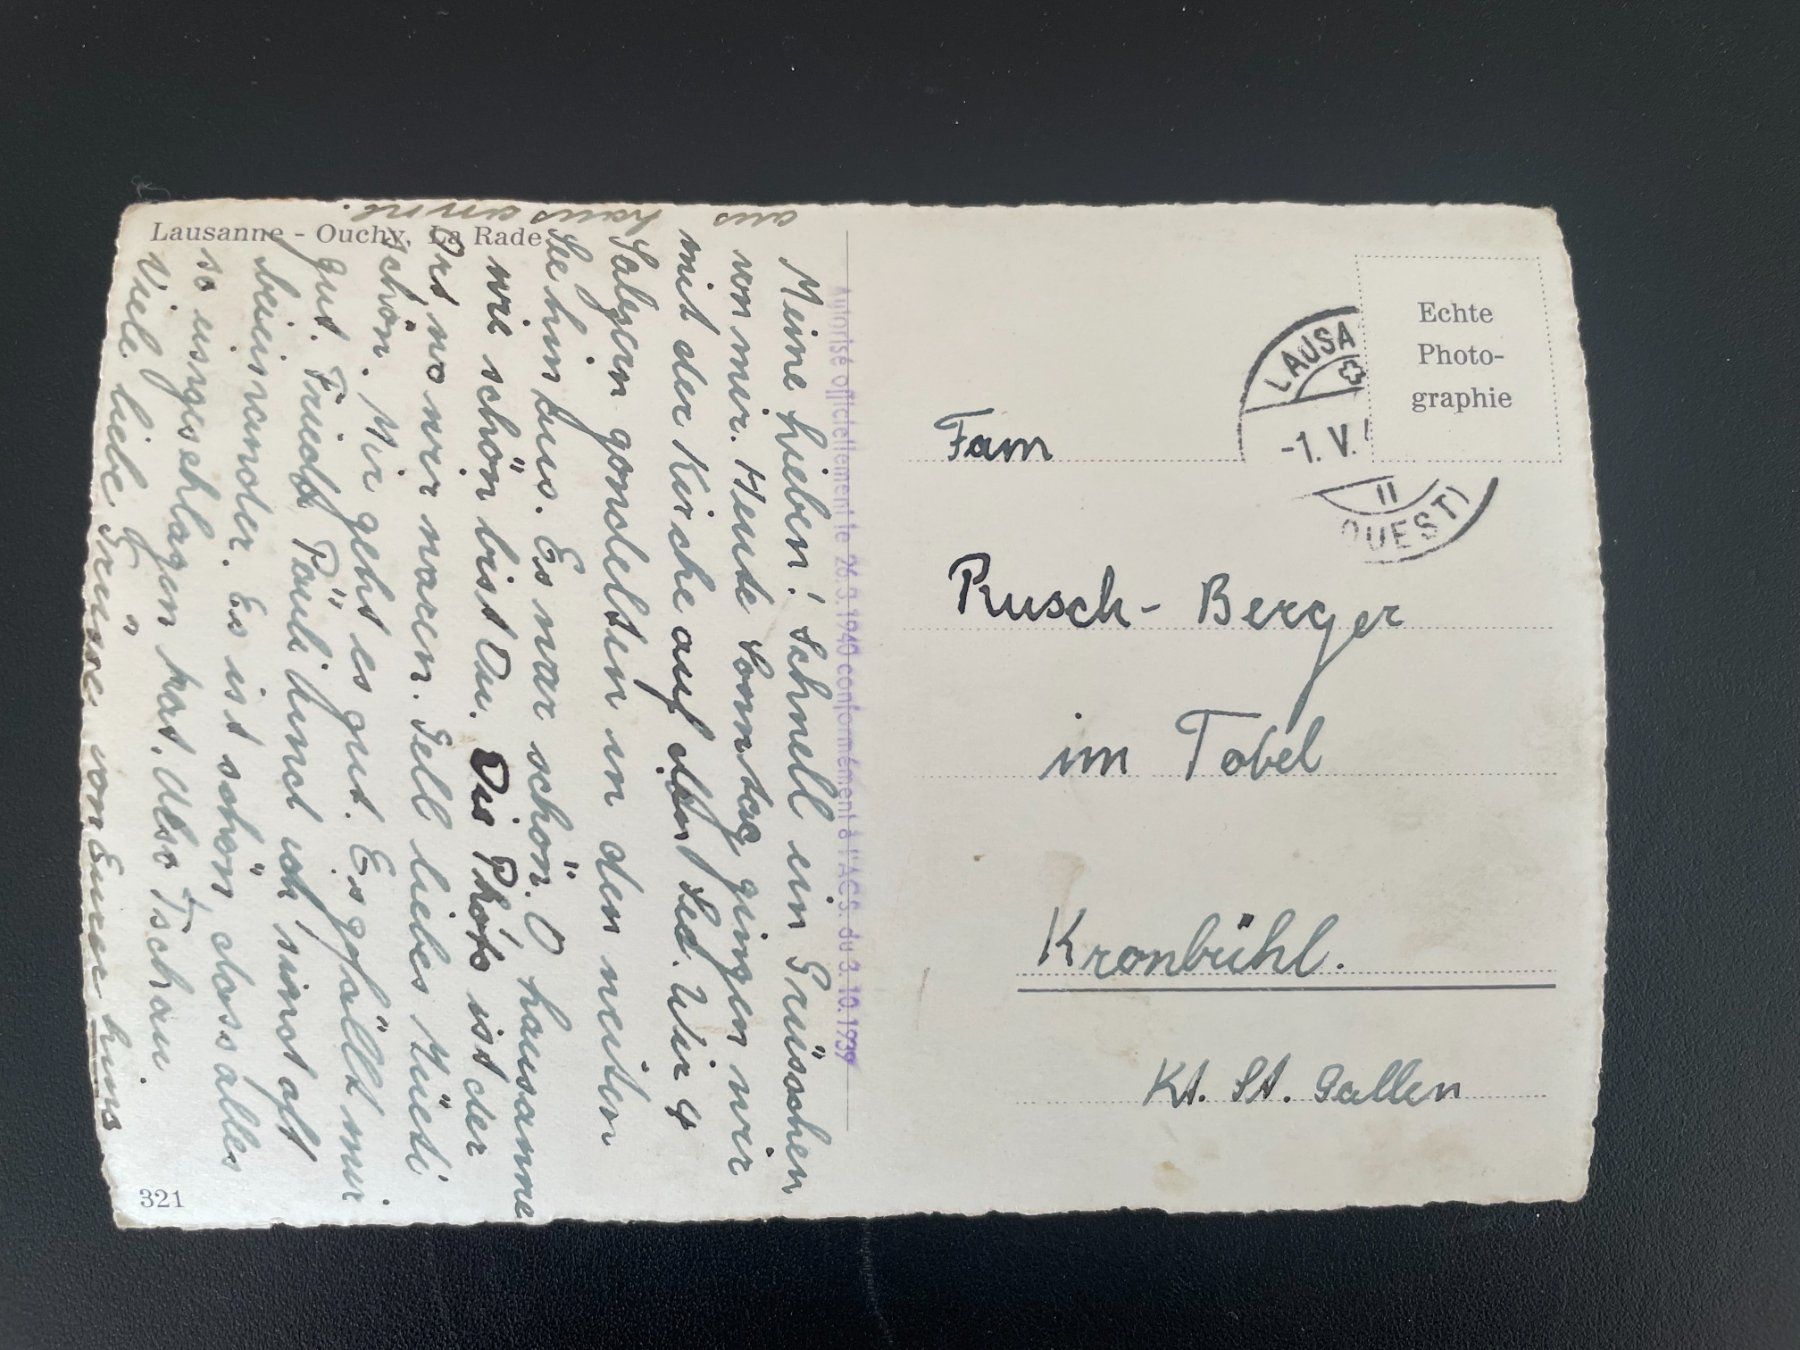 Lausanne - Ouchy, La Rade
aus
Lausanne.
Meine Lieben! Schnell ein Grüsschen
von mir. Heute Sonntag gingen wir
mit der Kirche auf den See. Wir 4
gondelten in den weiten
See hinaus. Es war schön. O Lausanne
wie schön bist Du. Dis Photo ist der
Ort wo wir waren. Gell liebes Müeti
schön. Mir gehts es gut. Es gfällt mir
gut. Friedi Päuli und ich sind oft
beieinander. Es ist schön dass alles
so eingeschlagen hat. Also Tschau.
Viele liebe Grüsse von Eurer
321
Autorisé officiellement le 26.3.1940 conformément à l'ACS. du 3.10.1939
Echte
Photo-
graphie
LAUSA
-1. V.
II
OUEST)
Fam
Rusch - Berger
im Tobel
Kronbühl.
Kt. St. Gallen